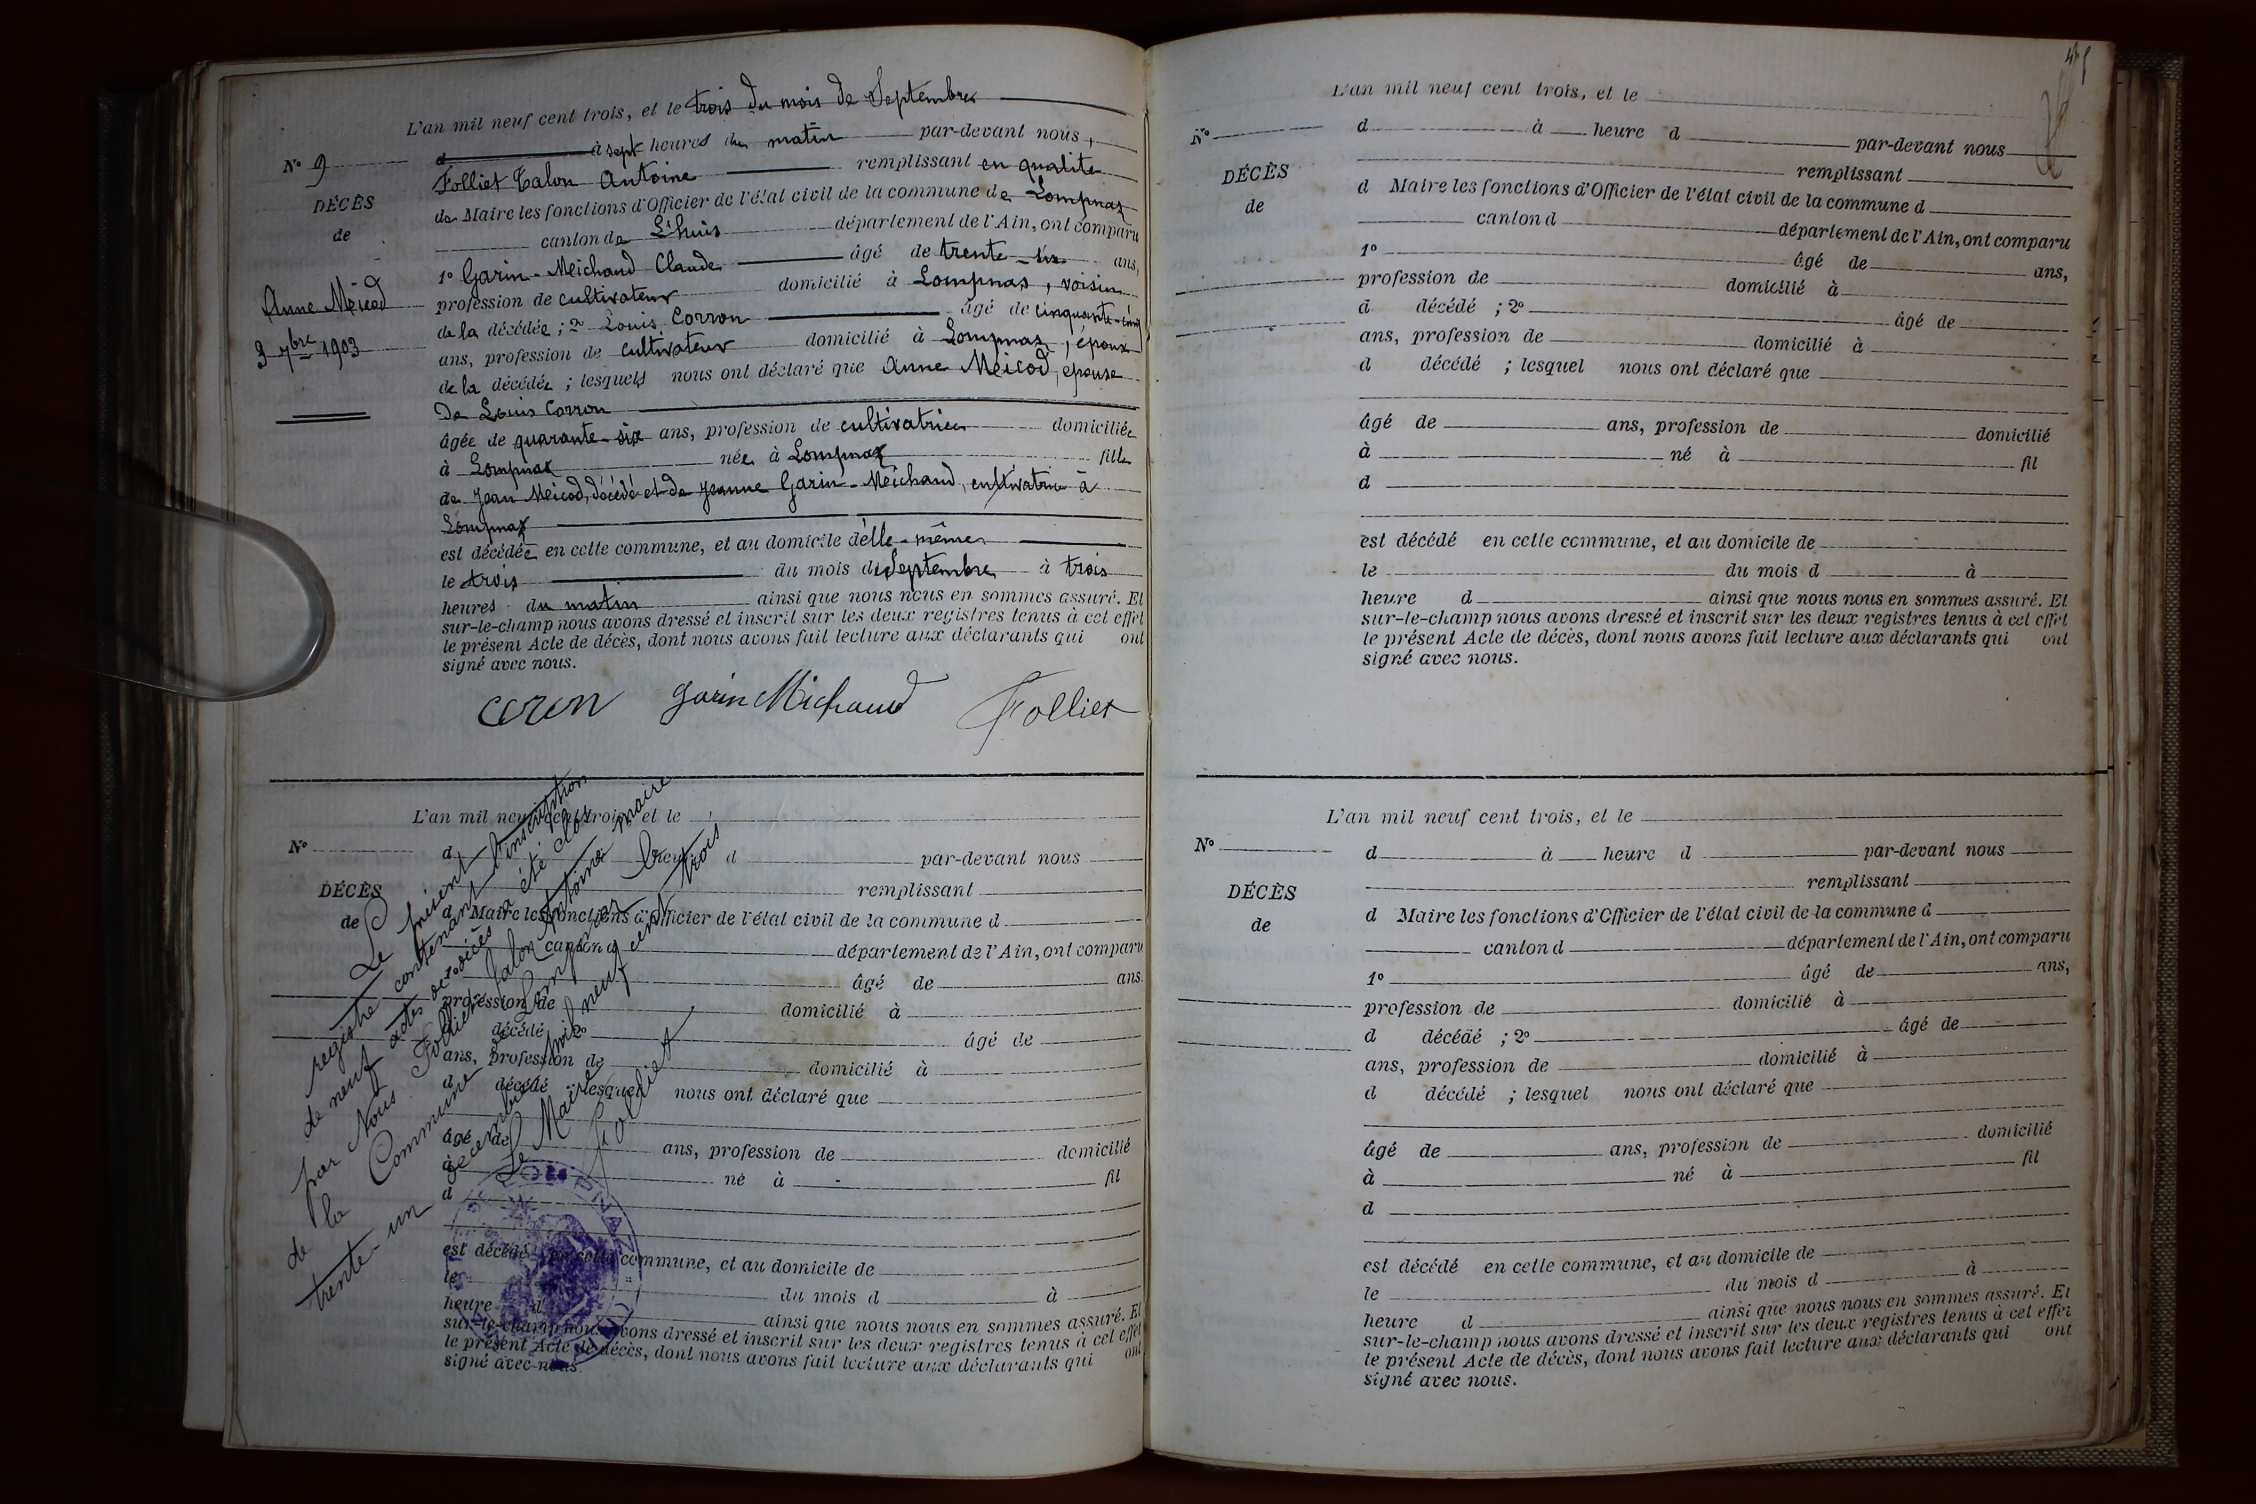 L'an mil neuf cent trois, et le trois du mois de Septembre
N° 9
d à sept heures du matin par-devant nous,
Folliet Talon Antoine remplissant en qualité
DÉCÈS
de Maire les fonctions d'Officier de l'état civil de la commune de Lompnaz
de
canton de Lhuis département de l'Ain, ont comparu
1° Garin-Meichaud Claude âgé de trente-six ans,
Anne Méicod
profession de cultivateur domicilié à Lompnas, voisin
de la décédée; 2° Louis Corron âgé de cinquante-cinq
3 7bre 1903
ans, profession de cultivateur domicilié à Lompnaz, époux
de la décédée; lesquels nous ont déclaré que Anne Meicod, épouse
De Louis Corron
âgée de quarante-six ans, profession de cultivatrice domiciliée
à Lompnaz née à Lompnaz fille
de Jean Meicod, décédé et de Jeanne Garin-Meichaud, cultivatrice à
Lompnaz
est décédée en cette commune, et au domicile d'elle-même
le trois du mois de Septembre à trois
heures du matin ainsi que nous nous en sommes assuré. Et
sur-le-champ nous avons dressé et inscrit sur les deux registres tenus à cet effet
le présent Acte de décès, dont nous avons fait lecture aux déclarants qui ont
signé avec nous.
coron Garin Michaud Folliet
L'an mil neuf cent trois, et le
N°
d heure d par-devant nous
remplissant
DÉCÈS
d Maire les fonctions d'Officier de l'état civil de la commune d
de
canton d département de l'Ain, ont comparu
âgé de ans
profession de domicilié à
décédé 2° âgé de
ans, profession de domicilié à
d décédé lesquel nous ont déclaré que
âgé de ans, profession de domicilié
à né à fil
d
est décédé en cette commune, et au domicile de
le du mois d à
heure d ainsi que nous nous en sommes assuré. Et
sur-le-champ nous avons dressé et inscrit sur les deux registres tenus à cet effet
le présent Acte de décès, dont nous avons fait lecture aux déclarants qui ont
signé avec nous.
Le présent
registre contenant l'inscription
de neuf actes de décès a été clos
par Nous Folliet Talon Antoine maire
de la Commune de Lompnaz le
trente-un décembre mil neuf cent trois
Le Maire
Folliet
L'an mil neuf cent trois, et le
N°
d à heure d par-devant nous
remplissant
DÉCÈS
d Maire les fonctions d'Officier de l'état civil de la commune d
de
canton d département de l'Ain, ont comparu
1° âgé de ans,
profession de domicilié à
d décédé ; 2° âgé de
ans, profession de domicilié à
d décédé ; lesquel nous ont déclaré que
âgé de ans, profession de domicilié
à né à fil
d
est décédé en cette commune, et au domicile de
le du mois d à
heure d ainsi que nous nous en sommes assuré. Et
sur-le-champ nous avons dressé et inscrit sur les deux registres tenus à cet effet
le présent Acte de décès, dont nous avons fait lecture aux déclarants qui ont
signé avec nous.
L'an mil neuf cent trois, et le
N°
d à heure d par-devant nous
remplissant
DÉCÈS
d Maire les fonctions d'Officier de l'état civil de la commune d
de
canton d département de l'Ain, ont comparu
1° âgé de ans,
profession de domicilié à
d décédé ; 2° âgé de
ans, profession de domicilié à
d décédé ; lesquel nous ont déclaré que
âgé de ans, profession de domicilié
à né à fil
d
est décédé en cette commune, et au domicile de
le du mois d à
heure d ainsi que nous nous en sommes assuré. Et
sur-le-champ nous avons dressé et inscrit sur les deux registres tenus à cet effet
le présent Acte de décès, dont nous avons fait lecture aux déclarants qui ont
signé avec nous.